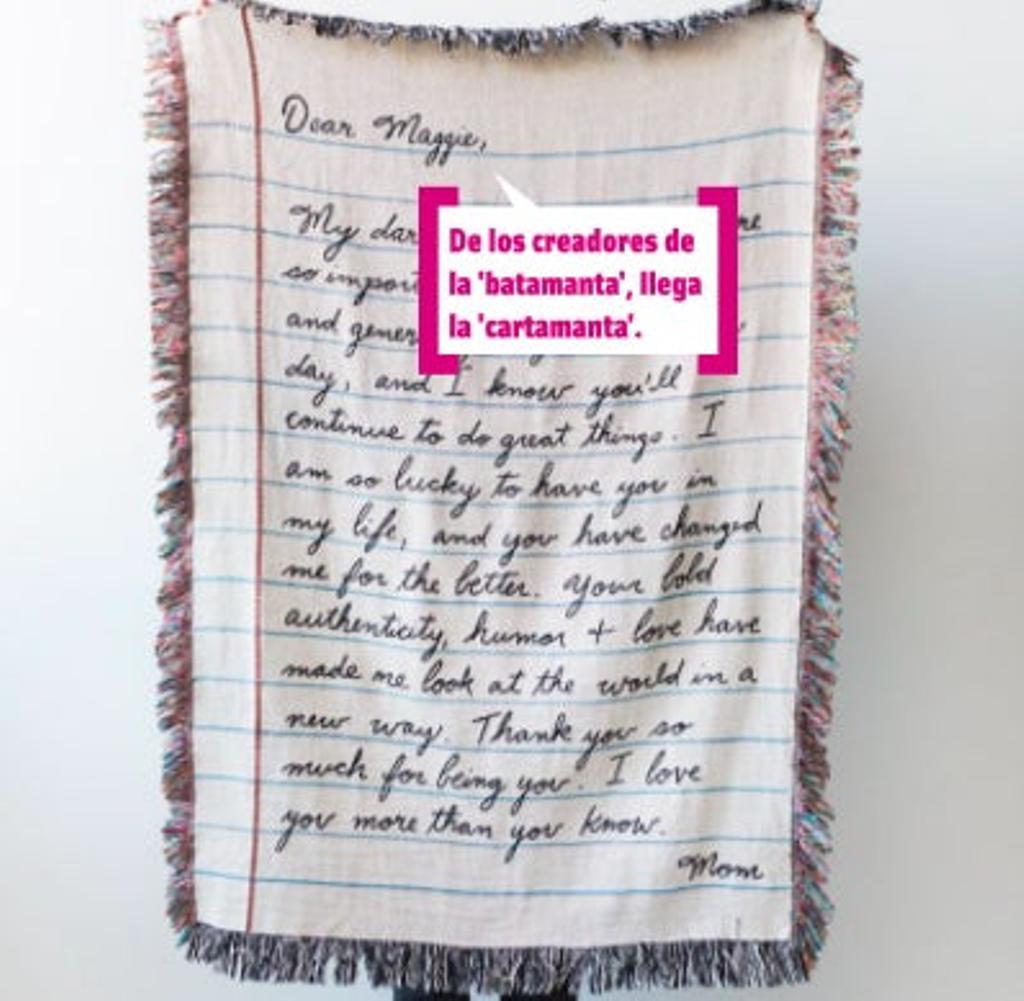 Dear Maggie,
De los creadores de
la 'batamanta', llega
la 'cartamanta'.
My
so
and
day, and I know you'll
continue to do great things. I
am so lucky to have you in
my life, and you have changed
me for the better. Your bold
authenticity, humor + love have
made me look at the world in a
new way. Thank you so
much for being you. I love
you more than you know.
Mom